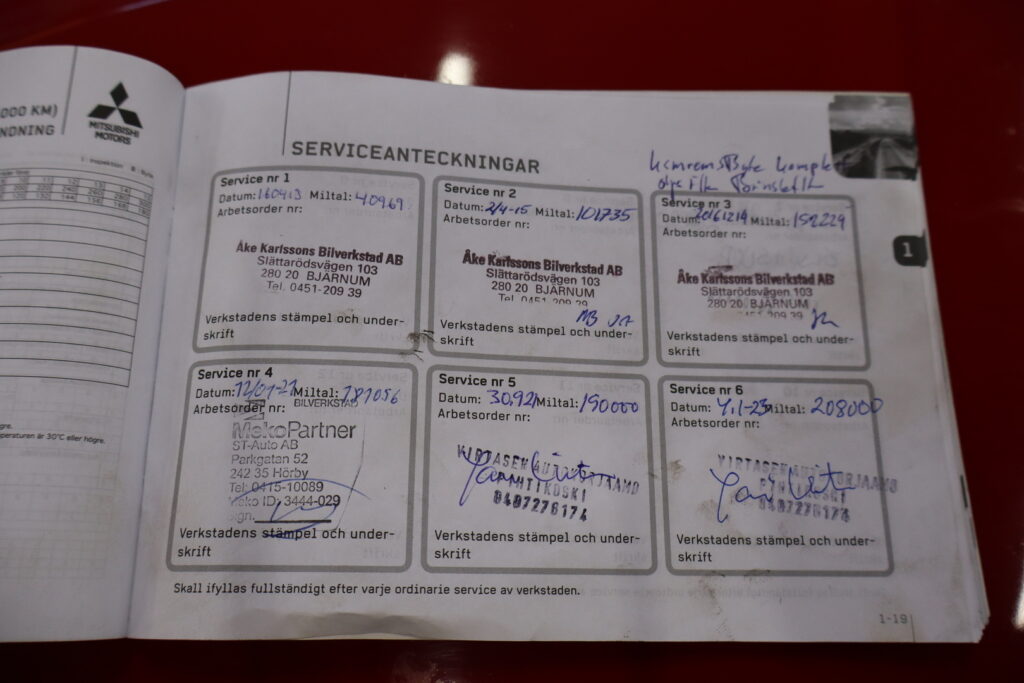 000 KM)
NDNING
MITSUBISHI
MOTORS
SERVICEANTECKNINGAR
Service nr 1
Datum: 160413 Miltal: 40969
Arbetsorder nr:
Åke Karlssons Bilverkstad AB
Slättarödsvägen 103
280 20 BJÄRNUM
Tel. 0451-209 39
Verkstadens stämpel och under-
skrift
Service nr 2
Datum: 2/4-15 Miltal: 101735
Arbetsorder nr:
Åke Karlssons Bilverkstad AB
Slättarödsvägen 103
280 20 BJÄRNUM
Tel. 0451-209 39
Verkstadens stämpel och under-
skrift
Service nr 3
Datum: 20161214 Miltal: 152229
Arbetsorder nr:
Åke Karlssons Bilverkstad AB
Slättarödsvägen 103
280 20 BJÄRNUM
Verkstadens stämpel och under-
skrift
1
Service nr 4
Datum: Miltal: 187056
Arbetsorder nr:
BILVERKSTAD
MekoPartner
ST-Auto AB
Parkgatan 52
242 35 Hörby
Tel: 0415-10089
Meko ID: 3444-029
Sign.
Verkstadens stämpel och under-
skrift
Service nr 5
Datum: 30.921 Miltal: 190000
Arbetsorder nr:
0407276174
Verkstadens stämpel och under-
skrift
Service nr 6
Datum: 4.1-23 Miltal: 208000
Arbetsorder nr:
0407276174
Verkstadens stämpel och under-
skrift
Skall ifyllas fullständigt efter varje ordinarie service av verkstaden.
1-19
peraturen är 30°C eller högre.